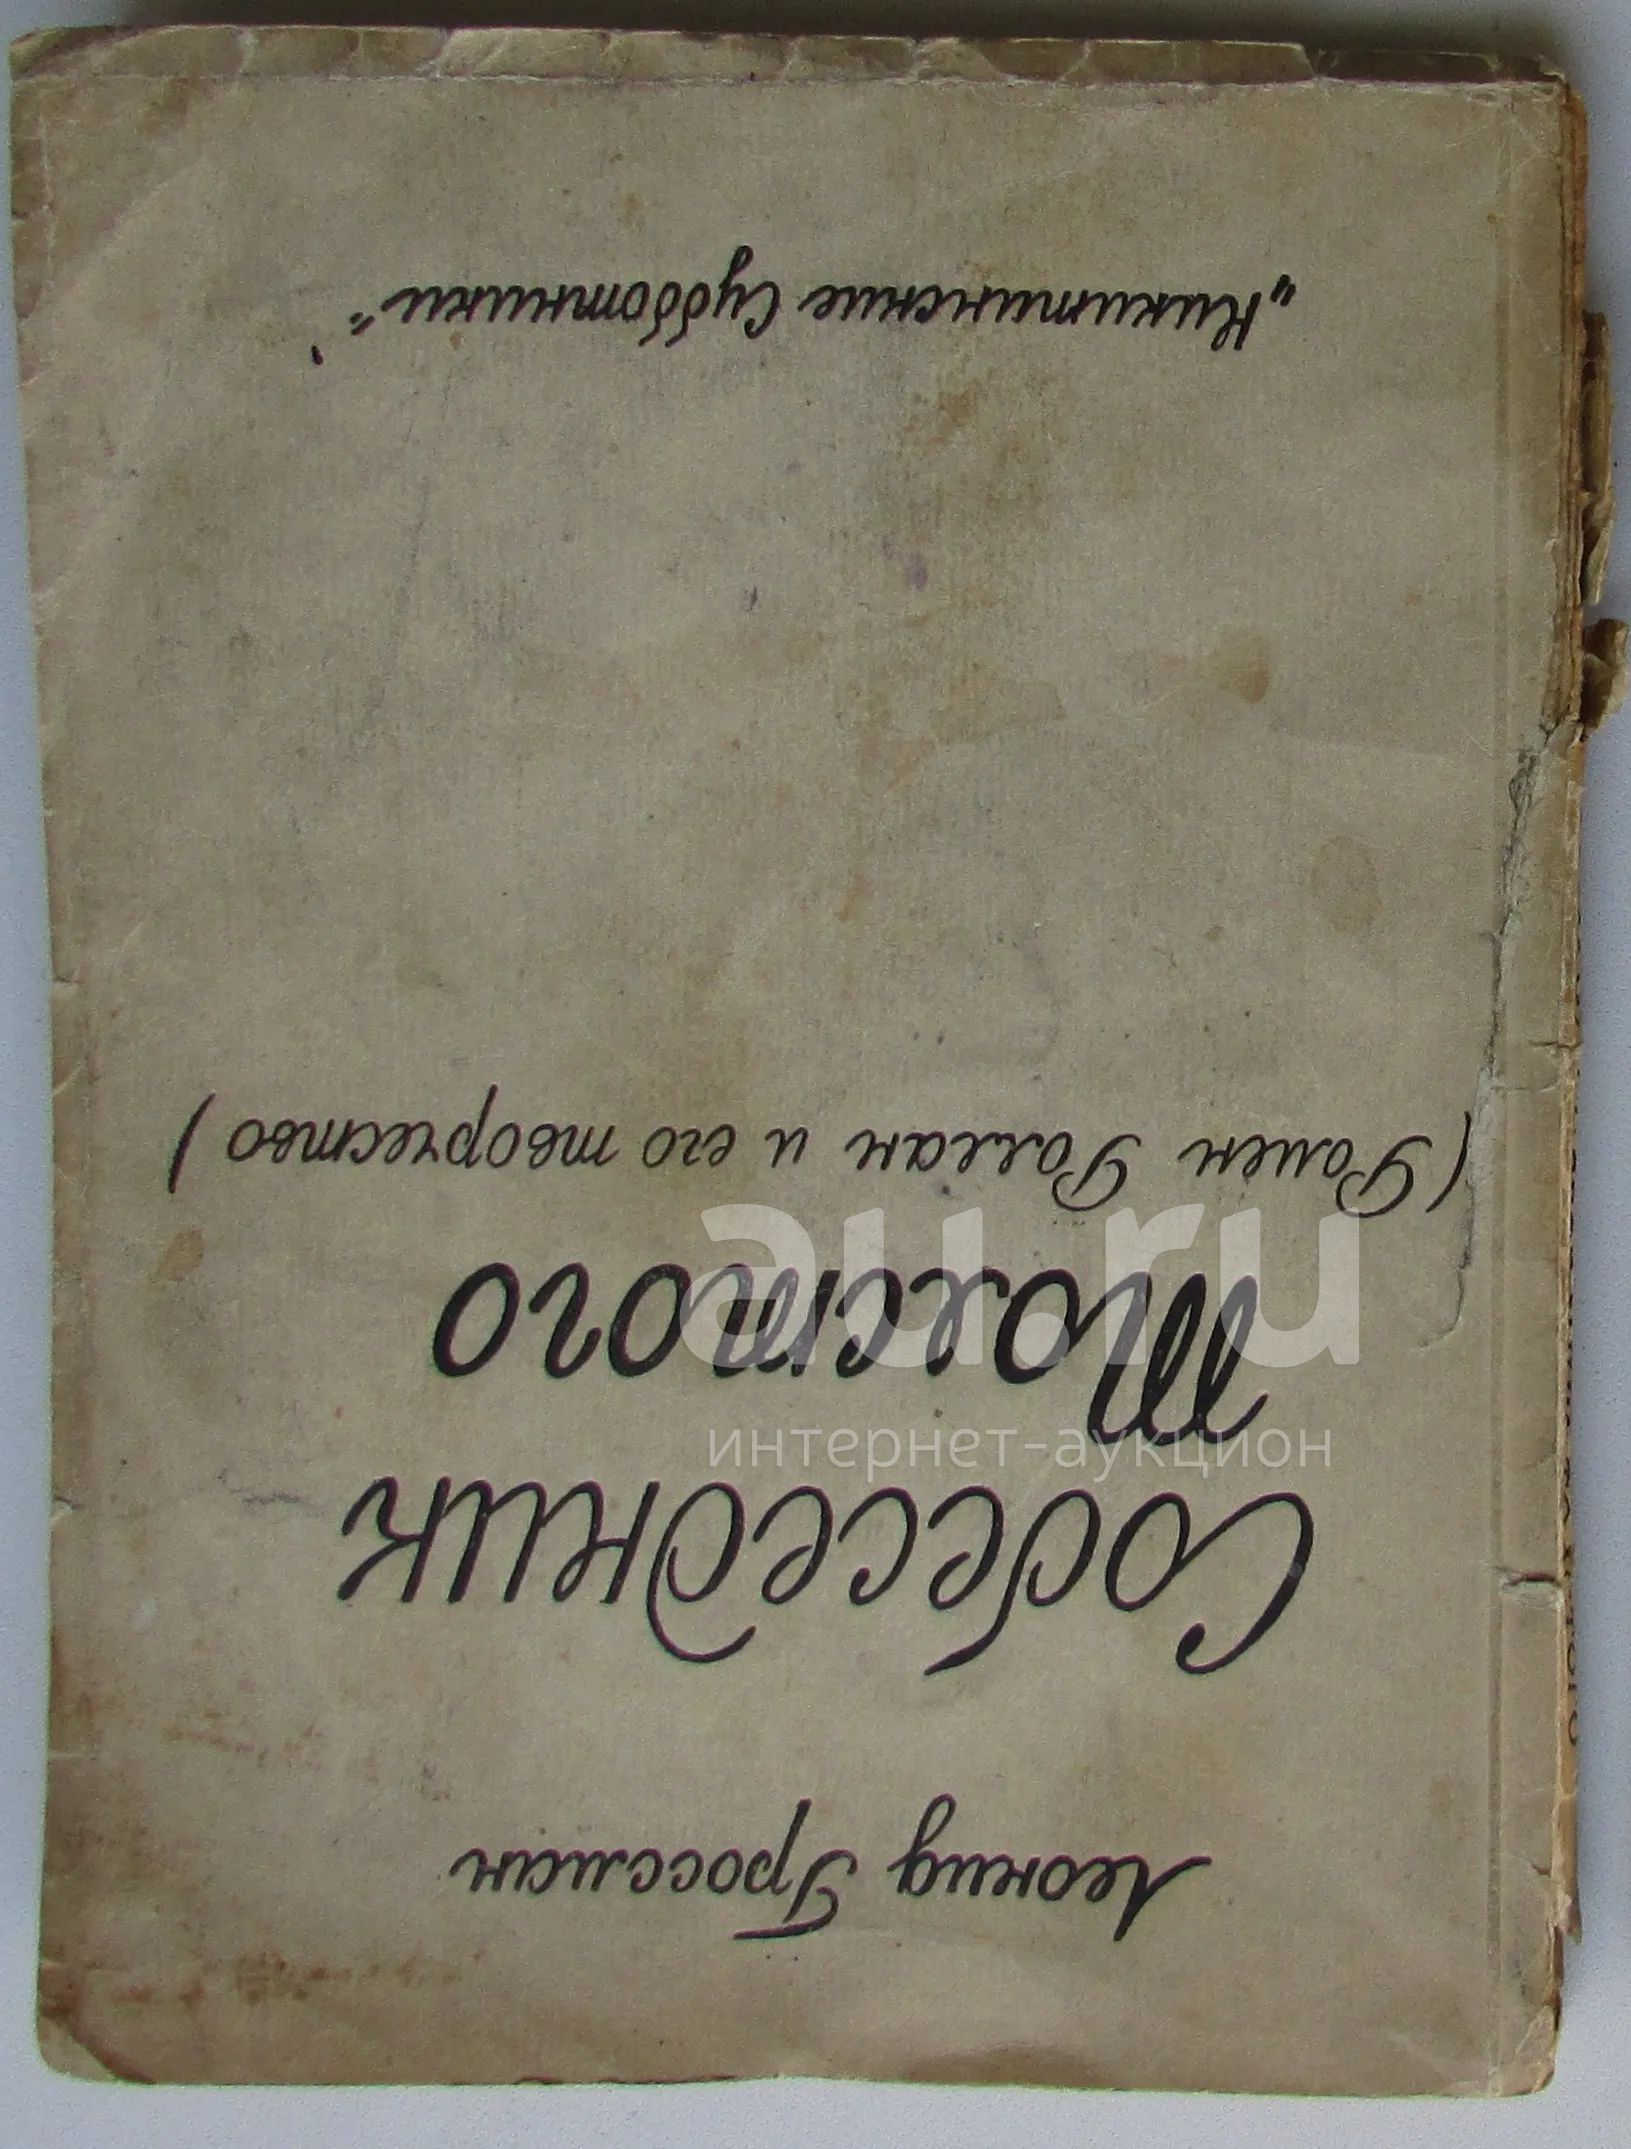 Леонид Гроссман
Собеседник
Толстого
(Ромен Роллан и его творчество)
„Никитинские Субботники“
au.ru
интернет-аукцион